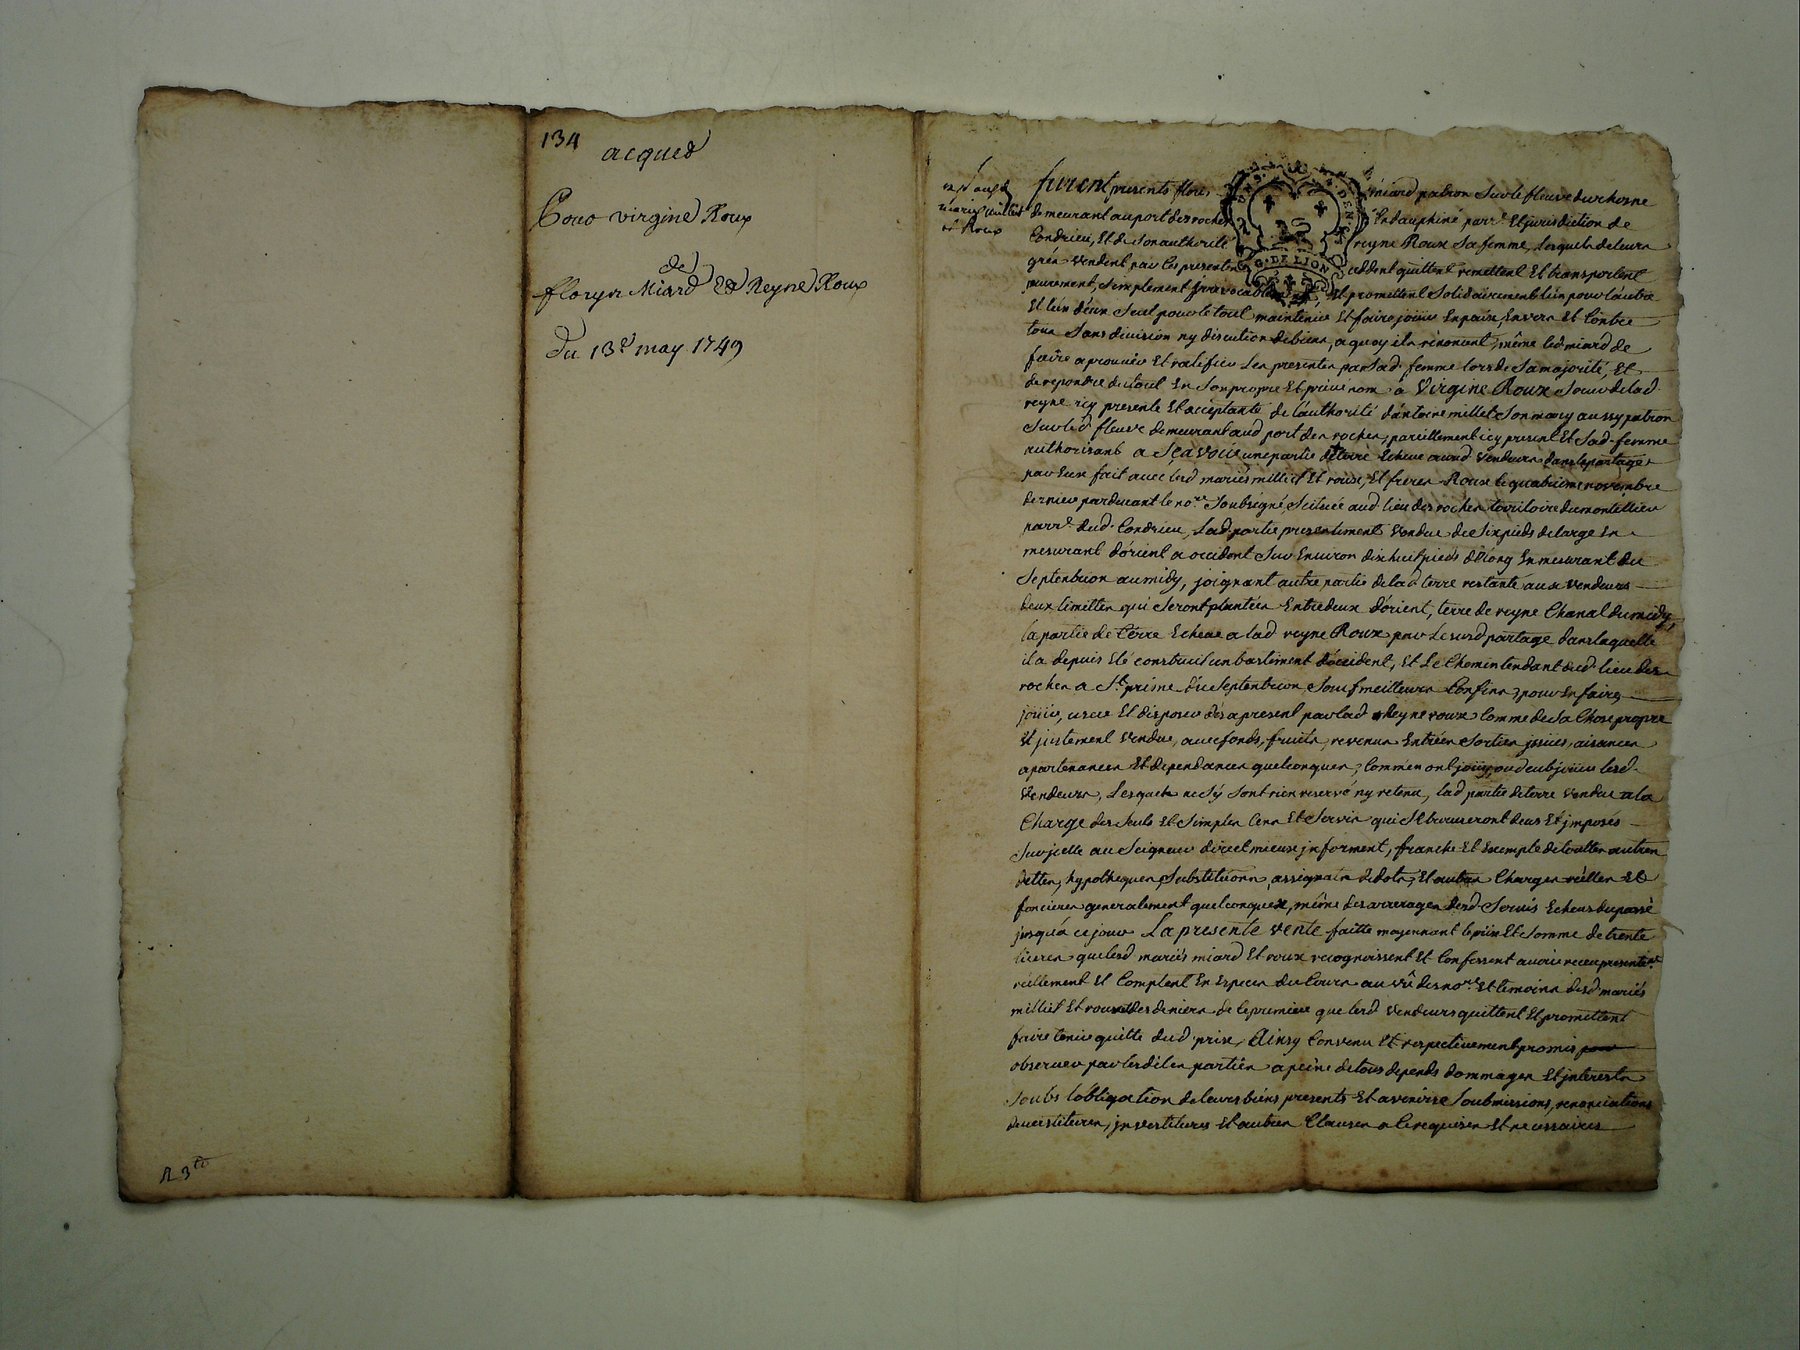 134
acqued
Pour virgine Roux
de
floryn Miard Et Reyne Roux
Du 13e may 1749
R 3
mariés milliet
et Roux
furent presents flory miard patron sur le fleuve du rhosne
demeurant au port des roches En dauphiné parre Et jurisdiction de
Condrieu, Et de son authorité reyne Roux sa femme, lesquels de leurs
grés vendent par les presentes cedent quittent remettent Et transportent
purement, simplement Irrevocablement, Et promettent solidairement l'un pour l'autre
Et l'un d'eux seul pour le tout maintenir Et faire joüir En paix, Envers Et Contre
tous sans division ny discution de biens, a quoy ils rénoncent, même led miard de
faire aprouver Et ratifier les presentes par sad femme lors de sa majorité, Et
de repondre du tout En son propre Et privé nom a Virgine Roux soeur de lad
reyne icy presente Et acceptante de l'authorité d'antoine milliet son mary aussy patron
sur led fleuve demeurant aud port des roches, pareillement icy present Et sad femme
authorisant a Sçavoir une partie de terre Echeue auxd vendeurs dans le partage
par Eux fait avec lesd mariés milliet Et roux, Et freres Roux le quatrieme novembre
dernier pardevant le nore soubsigné, scituée aud lieu des roches territoire du montellier
parre dud Condrieu, Lad partie presentement vendue de six pieds de large En
mesurant d'orient a occident sur Environ dix huit pieds de long En mesurant du
septentrion au midy, joignant autre partie de lad terre restante aux vendeurs
deux limittes qui seront plantées Entredeux d'orient, terre de reyne Chanal du midy,
la partie de terre Echeue a lad reyne Roux par le susd partage dans laquelle
il a depuis Eté construit un bastiment d'occident, Et Le Chemin tendant dud lieu des
roches a St prime du septentrion, sauf meilleurs Confins, pour En faire,
joüir, user Et disposer dés a present par lad Reyne roux Comme de sa Chose propre
Et justement vendue, avec fonds, fruits, revenus Entrées sorties, issües, aisances
apartenances Et dependances quelconques, Comm'en ont joüy, ou deub joüir lesd
vendeurs, Lesquels ne s'y sont rien reservé ny retenu, lad partie de terre vendue a la
Charge des seuls Et simples Cens Et servis qui se trouveront deus Et imposés
sur jcelle au seigneur direct mieux jnforment, franche Et Exempte de touttes autres
dettes, hypotheques, substitutions, assignats de dots, Et autres Charges réélles Et
foncieres generalement quelconques, même des arrerages desd servis Echeus du passé
jusqu'á ce jour La presente vente faitte moyennant le prix Et somme de trente
livres que lesd mariés miard Et roux recognoissent Et Confessent avoir receu presentemt
réellement Et Comptent En Especes du Cours au vû des nore Et temoins desd mariés
milliet Et roux des deniers de la premiere que lesd vendeurs quittent Et promettent
faire tenir quitte dud prix, Ainsy Convenu Et respectivement promis
observer par lesdites parties a peine de tous depends dommages Et jnterests
soubs l'obligation de leurs biens presents Et avenir soubmissions, renonciations
devestitures, jnvestitures Et autres Clauses a Ce requises Et nécéssaires
G. DE LION